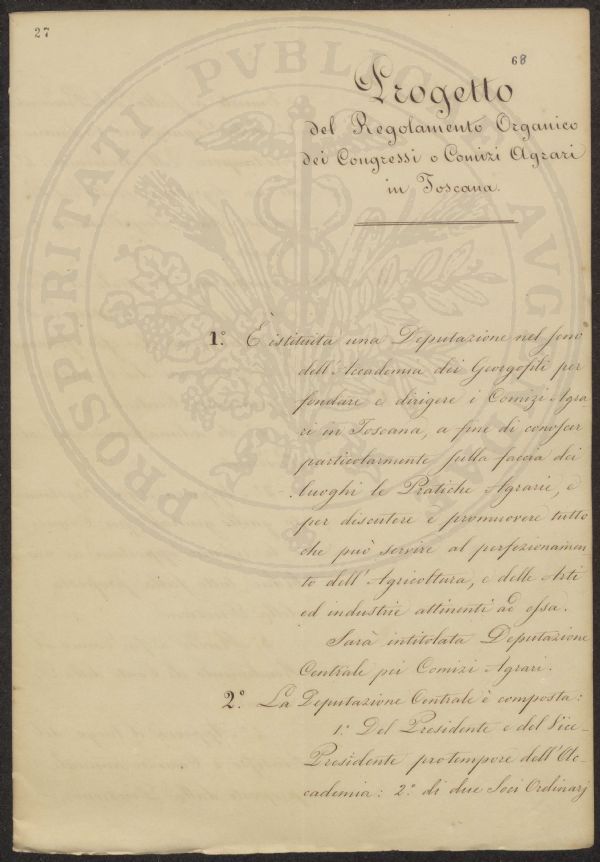 27
68
Progetto
del Regolamento Organico
dei Congressi o Comizi Agrari
in Toscana.
1.° È istituita una Deputazione nel seno
dell'Accademia dei Georgofili per
fondare e dirigere i Comizi Agra-
ri in Toscana, a fine di conoscer
particolarmente sulla faccia dei
luoghi le Pratiche Agrarie, e
per discutere e promuovere tutto
che può servire al perfezionamen-
to dell'Agricoltura, e delle Arti
ed industrie attinenti ad essa.
Sarà intitolata Deputazione
Centrale pei Comizi Agrari.
2.° La Deputazione Centrale è composta:
1.° Del Presidente e del Vice-
Presidente pro tempore dell'Ac-
cademia: 2.° di due Soci Ordinarj
PROSPERITATI PVBLICAE AVG